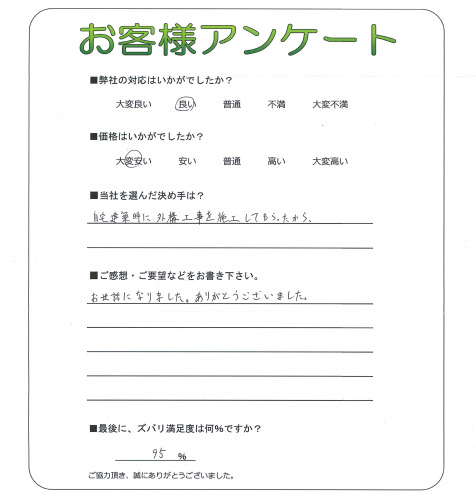 お客様アンケート
■弊社の対応はいかがでしたか？
大変良い 良い 普通 不満 大変不満
■価格はいかがでしたか？
大変安い 安い 普通 高い 大変高い
■当社を選んだ決め手は？
自宅建築時に外構工事を施工してもらったから、
■ご感想・ご要望などをお書き下さい。
お世話になりました。ありがとうございました。
■最後に、ズバリ満足度は何%ですか？
95 %
ご協力頂き、誠にありがとうございました。